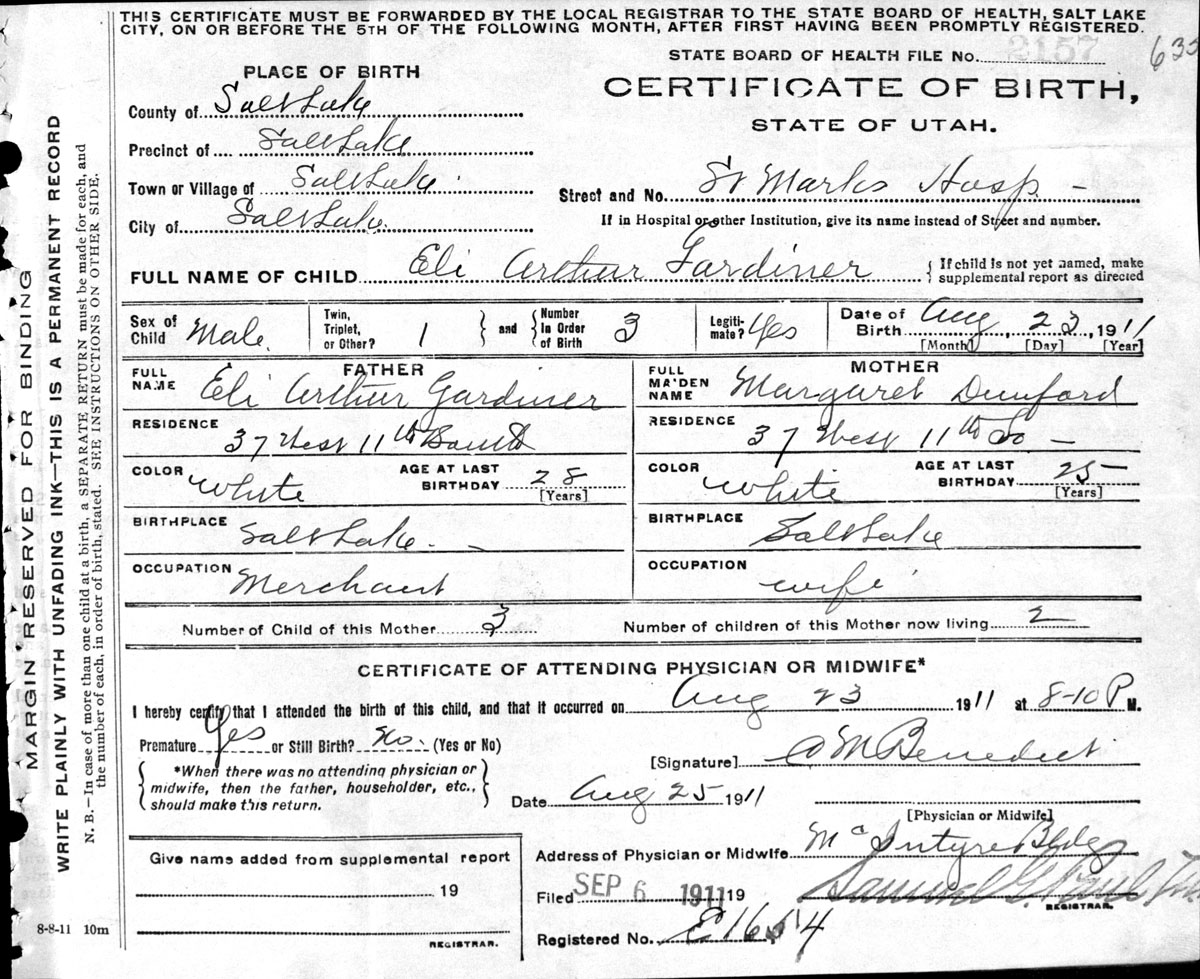 THIS CERTIFICATE MUST BE FORWARDED BY THE LOCAL REGISTRAR TO THE STATE BOARD OF HEALTH, SALT LAKE
CITY, ON OR BEFORE THE 5TH OF THE FOLLOWING MONTH, AFTER FIRST HAVING BEEN PROMPTLY REGISTERED.
STATE BOARD OF HEALTH FILE No. 2157 633
PLACE OF BIRTH
CERTIFICATE OF BIRTH,
STATE OF UTAH.
County of Salt Lake
Precinct of Salt Lake
Town or Village of Salt Lake
Street and No. St Marks Hosp -
City of Salt Lake.
If in Hospital or other Institution, give its name instead of Street and number.
FULL NAME OF CHILD Eli Arthur Gardiner { If child is not yet named, make
supplemental report as directed
Sex of Child Male.
Twin, Triplet, or Other? 1 } and { Number In Order of Birth 3
Legiti-mate? Yes
Date of Birth Aug 23, 1911
[Month] [Day] [Year]
FATHER
FULL NAME Eli Arthur Gardiner
RESIDENCE 37 West 11th South
COLOR White
AGE AT LAST BIRTHDAY 28
[Years]
BIRTHPLACE Salt Lake. -
OCCUPATION Merchant
MOTHER
FULL MAIDEN NAME Margaret Dunford
RESIDENCE 37 West 11th So -
COLOR White
AGE AT LAST BIRTHDAY 25-
[Years]
BIRTHPLACE Salt Lake
OCCUPATION wife
Number of Child of this Mother 3
Number of children of this Mother now living 2
CERTIFICATE OF ATTENDING PHYSICIAN OR MIDWIFE*
I hereby certify that I attended the birth of this child, and that it occurred on Aug 23 1911 at 8-10 P M.
Premature Yes or Still Birth? No. (Yes or No)
{ *When there was no attending physician or
midwife, then the father, householder, etc.,
should make this return. }
[Signature] C M Benedict
Date Aug 25 1911
[Physician or Midwife]
Give name added from supplemental report
19
REGISTRAR.
Address of Physician or Midwife McIntyre Bldg
Filed SEP 6 1911 19
Samuel G. Paul
REGISTRAR.
Registered No. E1654
8-8-11 10m
MARGIN RESERVED FOR BINDING
WRITE PLAINLY WITH UNFADING INK—THIS IS A PERMANENT RECORD
N. B.—In case of more than one child at a birth, a SEPARATE RETURN must be made for each, and
the number of each, in order of birth, stated. SEE INSTRUCTIONS ON OTHER SIDE.